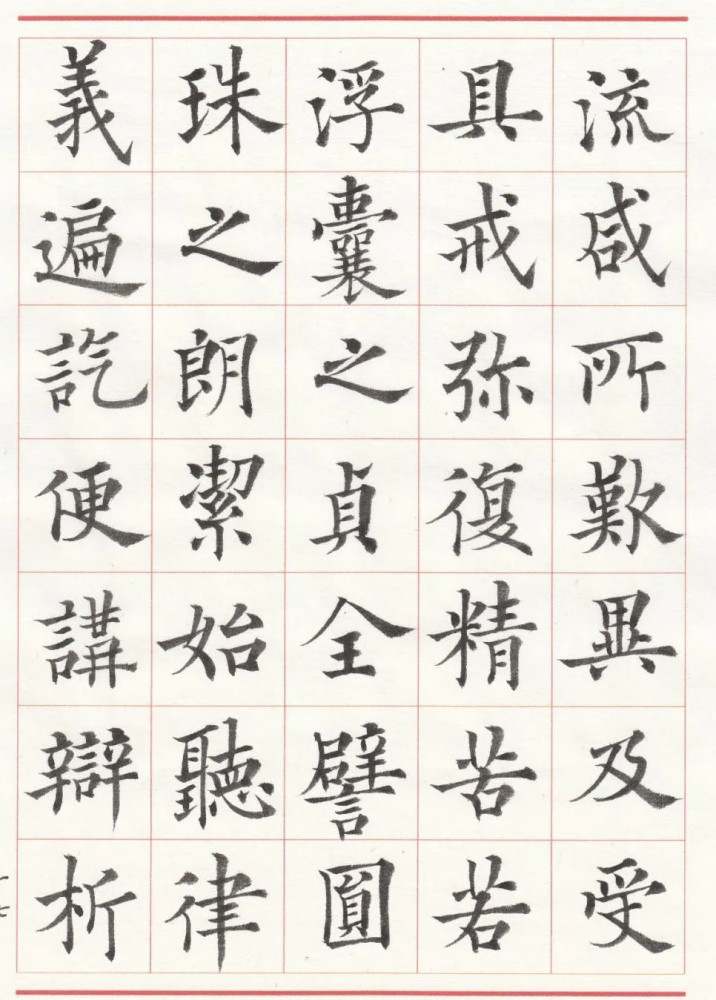 流咸所歎異及受
具戒弥復精苦若
浮囊之貞全譬圓
珠之朗潔始聽律
義遍訖便講辯析